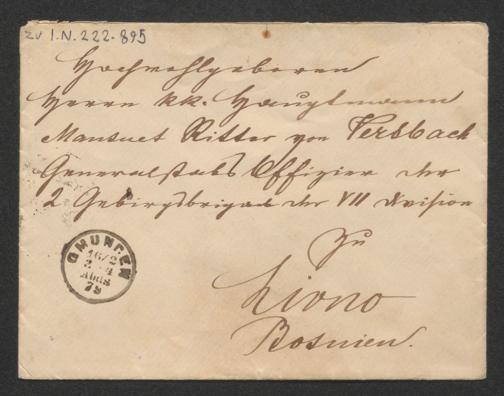 zu I.N. 222.895
Hochwohlgeboren
Herrn kk. Hauptmann
Mansuet Ritter von Versbach
Generalstabs Offizier der
2 Gebirgsbrigade der VII Division
Zu
Livno
Bosnien.
GMUNDEN
16/2
79